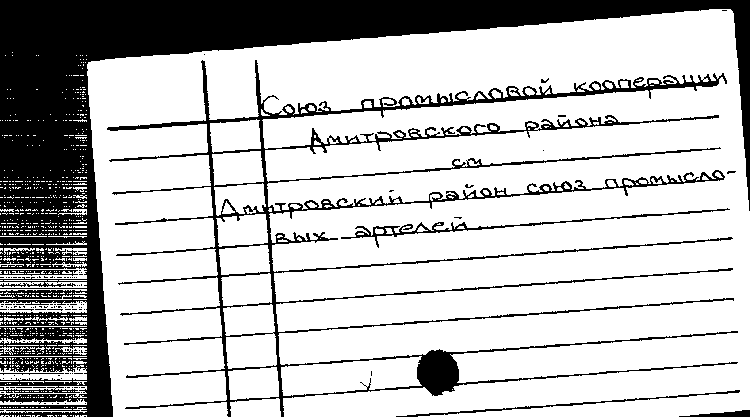 Союз промысловой кооперации
Дмитровского района
см.
Дмитровский район союз промысло-
вых артелей.